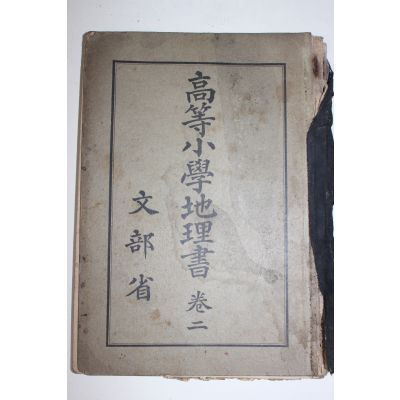 高等小學地理書 卷二
文部省